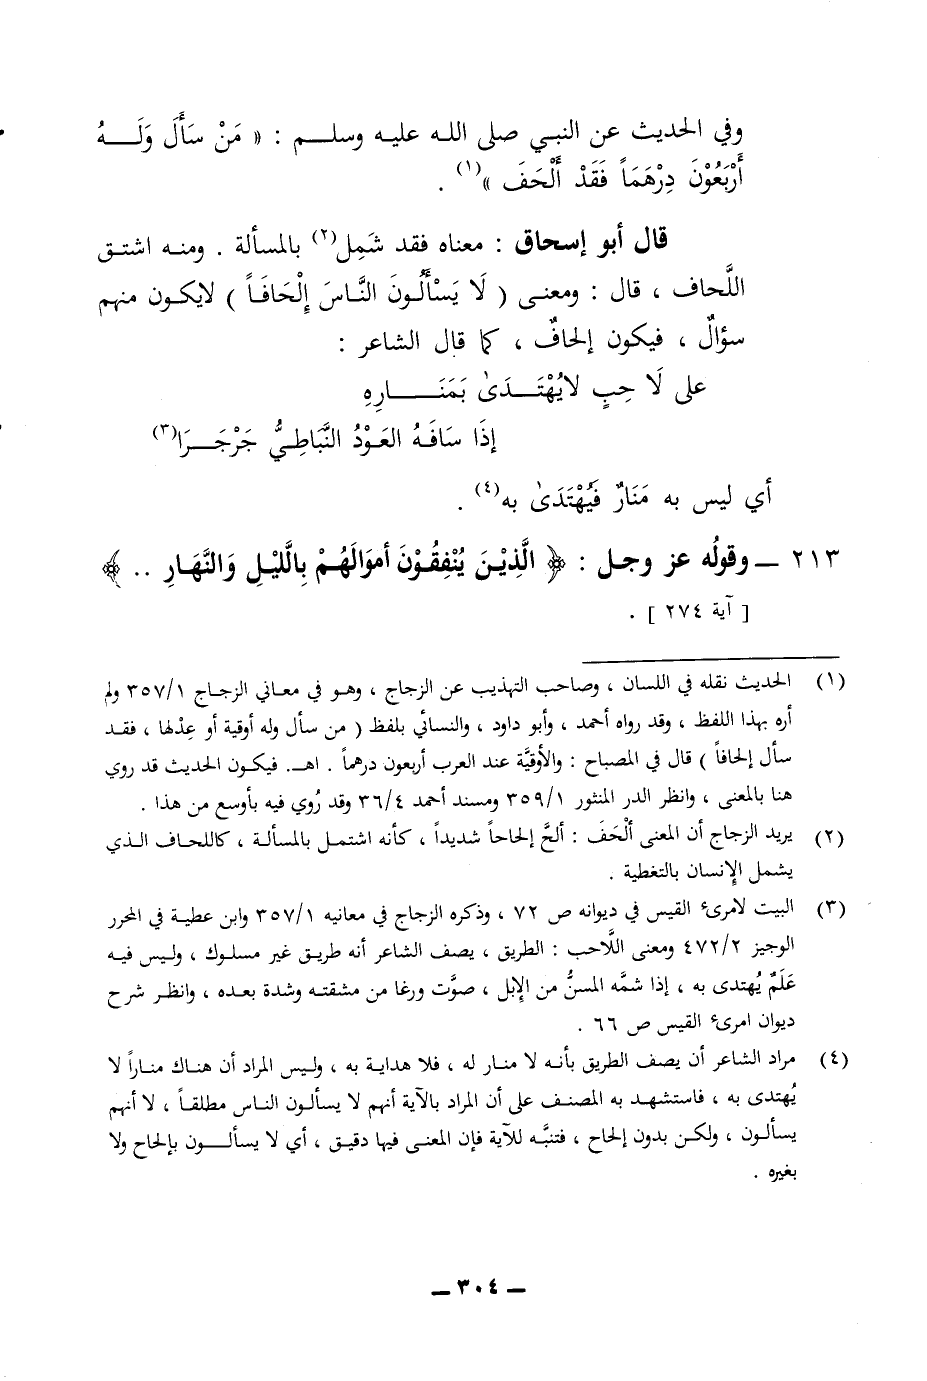 وفي الحديث عن النبي صلى الله عليه وسلـــم : « مَنْ سَأَلَ وَلَـــهُ
أَرْبَعُوْنَ دِرْهَمَاً فَقَدْ أَلْحَفَ »(١) .
قال أبو إسحاق : معناه فقد شَمِل(٢) بالمسألة . ومنـه اشتـق
اللَّحاف ، قال : ومعنى ( لَا يَسْأَلُـونَ النَّاسَ إِلْحَافَـاً ) لايكـون منهم
سؤالٌ ، فيكون إلحافٌ ، كما قال الشاعر :
على لَا حِبٍ لايُهْتَــدَىٰ بَمَنَـــــارِهِ
إذَا سَافَـهُ العَـوْدُ النَّبَاطِـيُّ جَرْجَـــرَا(٣)
أي ليس به مَنَارٌ فَيُهْتَدَىٰ به(٤) .
٢١٣ ــ وقولُه عز وجـل : ﴿ الَّذِيْـنَ يُنْفِقُـوْنَ أموَالَهُـمْ بِاللَّيْـلِ وَالنَّهَـارِ .. ﴾
[ آية ٢٧٤ ] .
(١) الحديث نقله في اللسان ، وصاحب التهذيب عن الزجاج ، وهـو في معاني الزجاج ٣٥٧/١ ولم
أره بهذا اللفظ ، وقد رواه أحمد ، وأبو داود ، والنسائي بلفظ ( من سأل وله أوقية أو عِدْلها ، فقـد
سأل إلحافاً ) قال في المصباح : والأوقيَّة عند العرب أربعون درهماً . اهـ. فيكون الحديث قد روي
هنا بالمعنى ، وانظر الدر المنثور ٣٥٩/١ ومسند أحمد ٣٦/٤ وقد رُوي فيه بأوسع من هذا .
(٢) يريد الزجاج أن المعنى أَلْحَفَ : ألحَّ إلحاحاً شديداً ، كأنه اشتمـل بالمسألـة ، كاللحـاف الـذي
يشمل الإنسان بالتغطية .
(٣) البيت لامرىء القيس في ديوانه ص ٧٢ ، وذكره الزجاج في معانيه ٣٥٧/١ وابن عطيـة في المحرر
الوجيز ٤٧٢/٢ ومعنى اللَّاحب : الطريق ، يصف الشاعر أنه طريـق غير مسلـوك ، وليـس فيـه
عَلَمٌ يُهتدى به ، إذا شمَّه المسنُّ من الإبل ، صوَّت ورغا من مشقتـه وشدة بعـده ، وانظـر شرح
ديوان امرىء القيس ص ٦٦ .
(٤) مراد الشاعر أن يصف الطريق بأنـه لا منـار له ، فلا هدايـة به ، وليس المراد أن هنـاك منـاراً لا
يُهتدى به ، فاستشهـد به المصنف على أن المراد بالآية أنهم لا يسألون الناس مطلقـاً ، لا أنهم
يسألـون ، ولكـن بدون إلحاح ، فتنبَّـه للآية فإن المعنى فيها دقيق ، أي لا يسألـــون بإلحاح ولا
بغيره .
ــ ٣٠٤ ــ